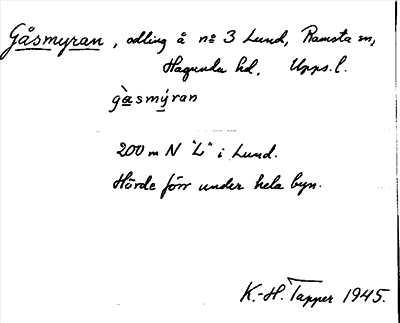 Gåsmyran, odling å nº 3 Lund, Ramsta sn,
Hagunda hd, Upps. l.
gàsmýran
200 m N "L" i Lund.
Hörde förr under hela byn.
K.-H. Tapper 1945.